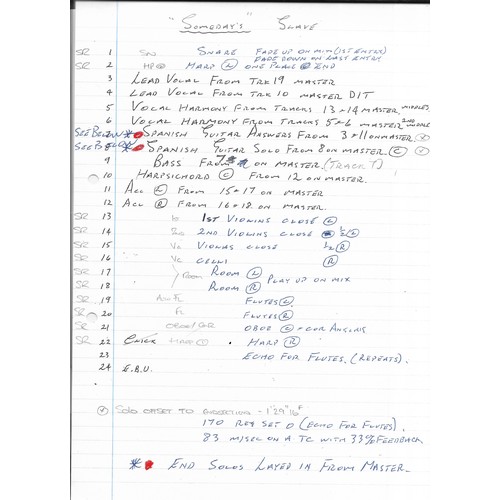 "SOMEDAY'S" SLAVE
SR 1 SN SNARE FADE UP ON MIX (1ST ENTRY)
FADE DOWN ON LAST ENTRY
SR 2 HP HARP (L) ONE PLACE @ END
3 LEAD VOCAL FROM TRK 19 MASTER
4 LEAD VOCAL FROM TRK 10 MASTER DIT
5 VOCAL HARMONY FROM TRACKS 13 + 14 MASTER MIDDLES
6 VOCAL HARMONY FROM TRACKS 5 + 6 MASTER 2ND MIDDLE
SEE BELOW * 7 SPANISH GUITAR ANSWERS FROM 3 + 11 ON MASTER
SEE BELOW * 8 SPANISH GUITAR SOLO FROM 8 ON MASTER (C)
9 BASS FROM 7 ON MASTER (TRACK 7)
10 HARPSICHORD (C) FROM 12 ON MASTER
11 ACC (L) FROM 15 + 17 ON MASTER
12 ACC (R) FROM 16 + 18 ON MASTER
SR 13 1ST VIOLINS CLOSE (L)
SR 14 2ND VIOLINS CLOSE 1/2 (L)
SR 15 VA VIOLAS CLOSE 1/2 (R)
SR 16 VC CELLI (R)
SR 17 ROOM ROOM (L) PLAY UP ON MIX
SR 18 ROOM (R)
SR 19 FL FLUTES (L)
SR 20 FL FLUTES (R)
SR 21 OBOE/COR OBOE (C) + COR ANGLAIS
SR 22 CLICK HARP HARP (R)
23 ECHO FOR FLUTES (REPEATS).
24 E.B.U.
SOLO OFFSET TO - 1"29"16F
170 REV SET 0 (ECHO FOR FLUTES).
83 M/SEC ON A TC WITH 33% FEEDBACK
* END SOLOS LAYED IN FROM MASTER.